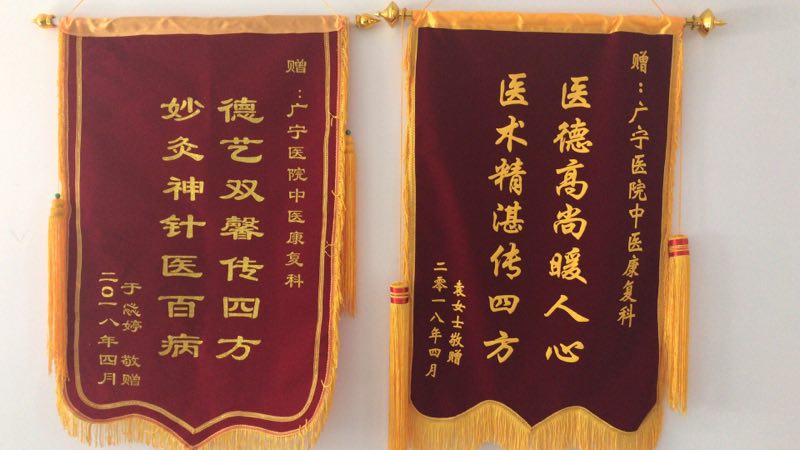 赠：广宁医院中医康复科
德艺双馨传四方
妙灸神针医百病
于悠婷 敬赠
二〇一八年四月
赠：广宁医院中医康复科
医德高尚暖人心
医术精湛传四方
袁女士敬赠
二零一八年四月